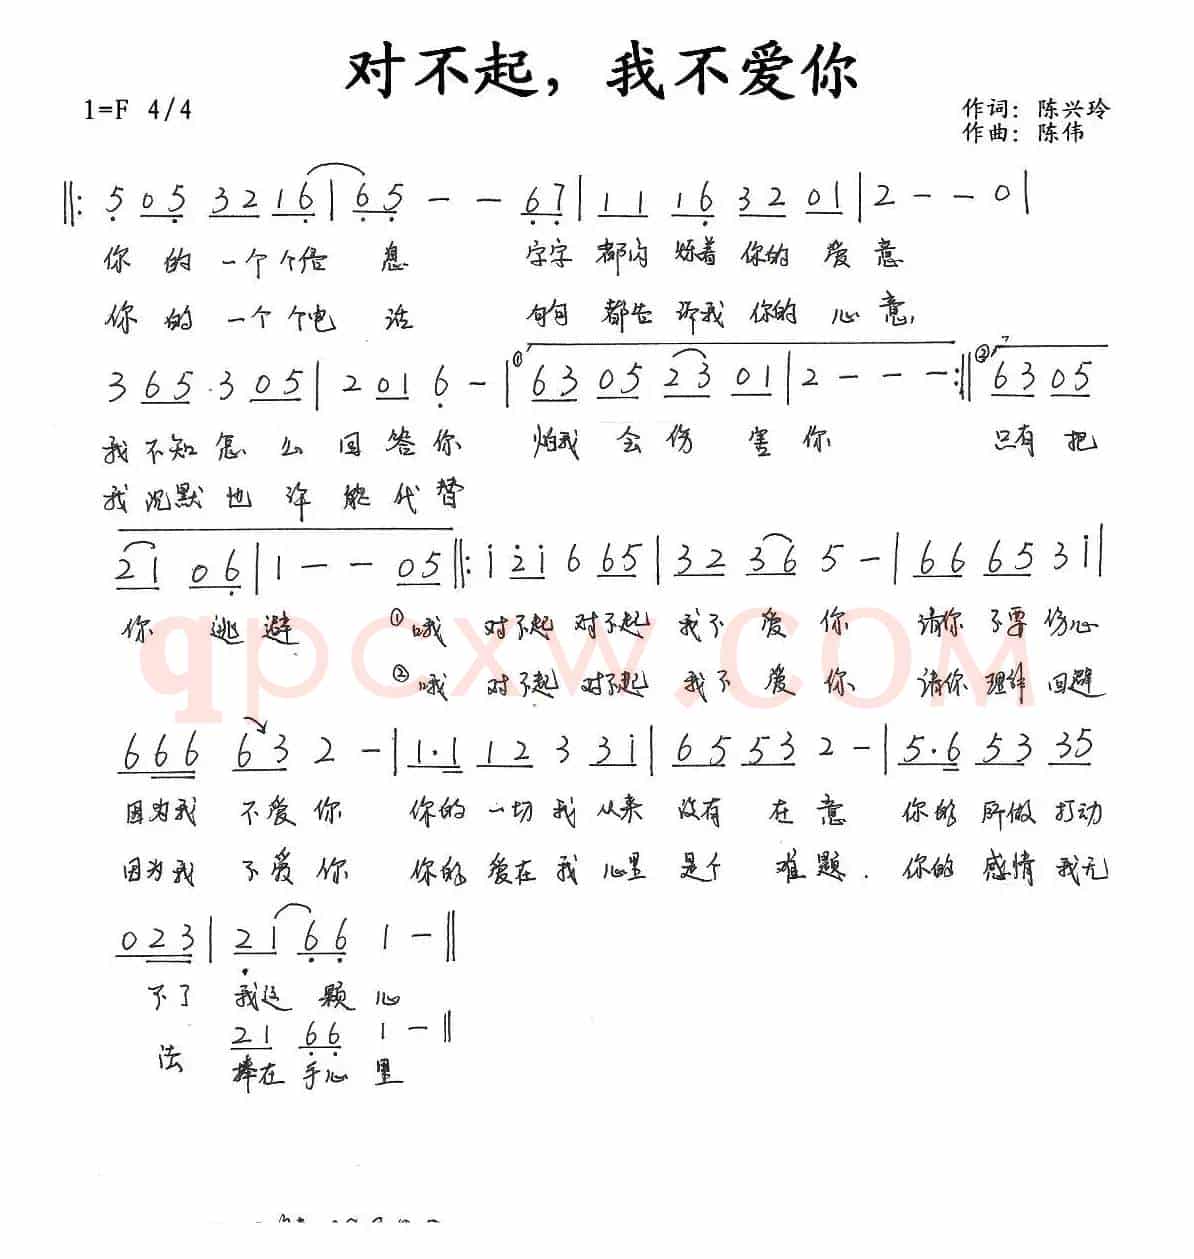 对不起，我不爱你
1=F 4/4
作词：陈兴玲
作曲：陈伟
‖: 5 05 32 16 | 65 - - 67 | 11 16 32 01 | 2 - - 0 |
你 的 一个 个信 息 字字 都闪 烁着 你的 爱 意
你 的 一个 个电 话 句句 都告 诉我 你的 心 意,
3 65 · 3 05 | 2 01 6 - | ① 63 05 23 01 | 2 - - - :‖ ② 63 05
我 不 知 怎 么 回 答 你 怕我 会 伤 害 你 只有 把
我 沉 默 也 许 能 代 替
21 06 | 1 - - 05 ‖: i 2i 6 65 | 32 36 5 - | 66 65 3 i |
你 逃 避 ①哦 对不起 对不起 我不 爱 你 请你 不要 伤心
②哦 对不起 对不起 我不 爱 你 请你 理解 回避
666 63 2 - | 1·1 12 3 3i | 65 53 2 - | 5·6 53 35
因为我 不爱 你 你的 一切 我 从来 没有 在 意 你的 所做 打动
因为我 不爱 你 你的 爱在 我 心里 是个 难 题. 你的 感情 我无
023 | 21 66 1 - ‖
不了 我这 颗 心
21 66 1 - ‖
法 捧在 手心 里
qpcxw.COM